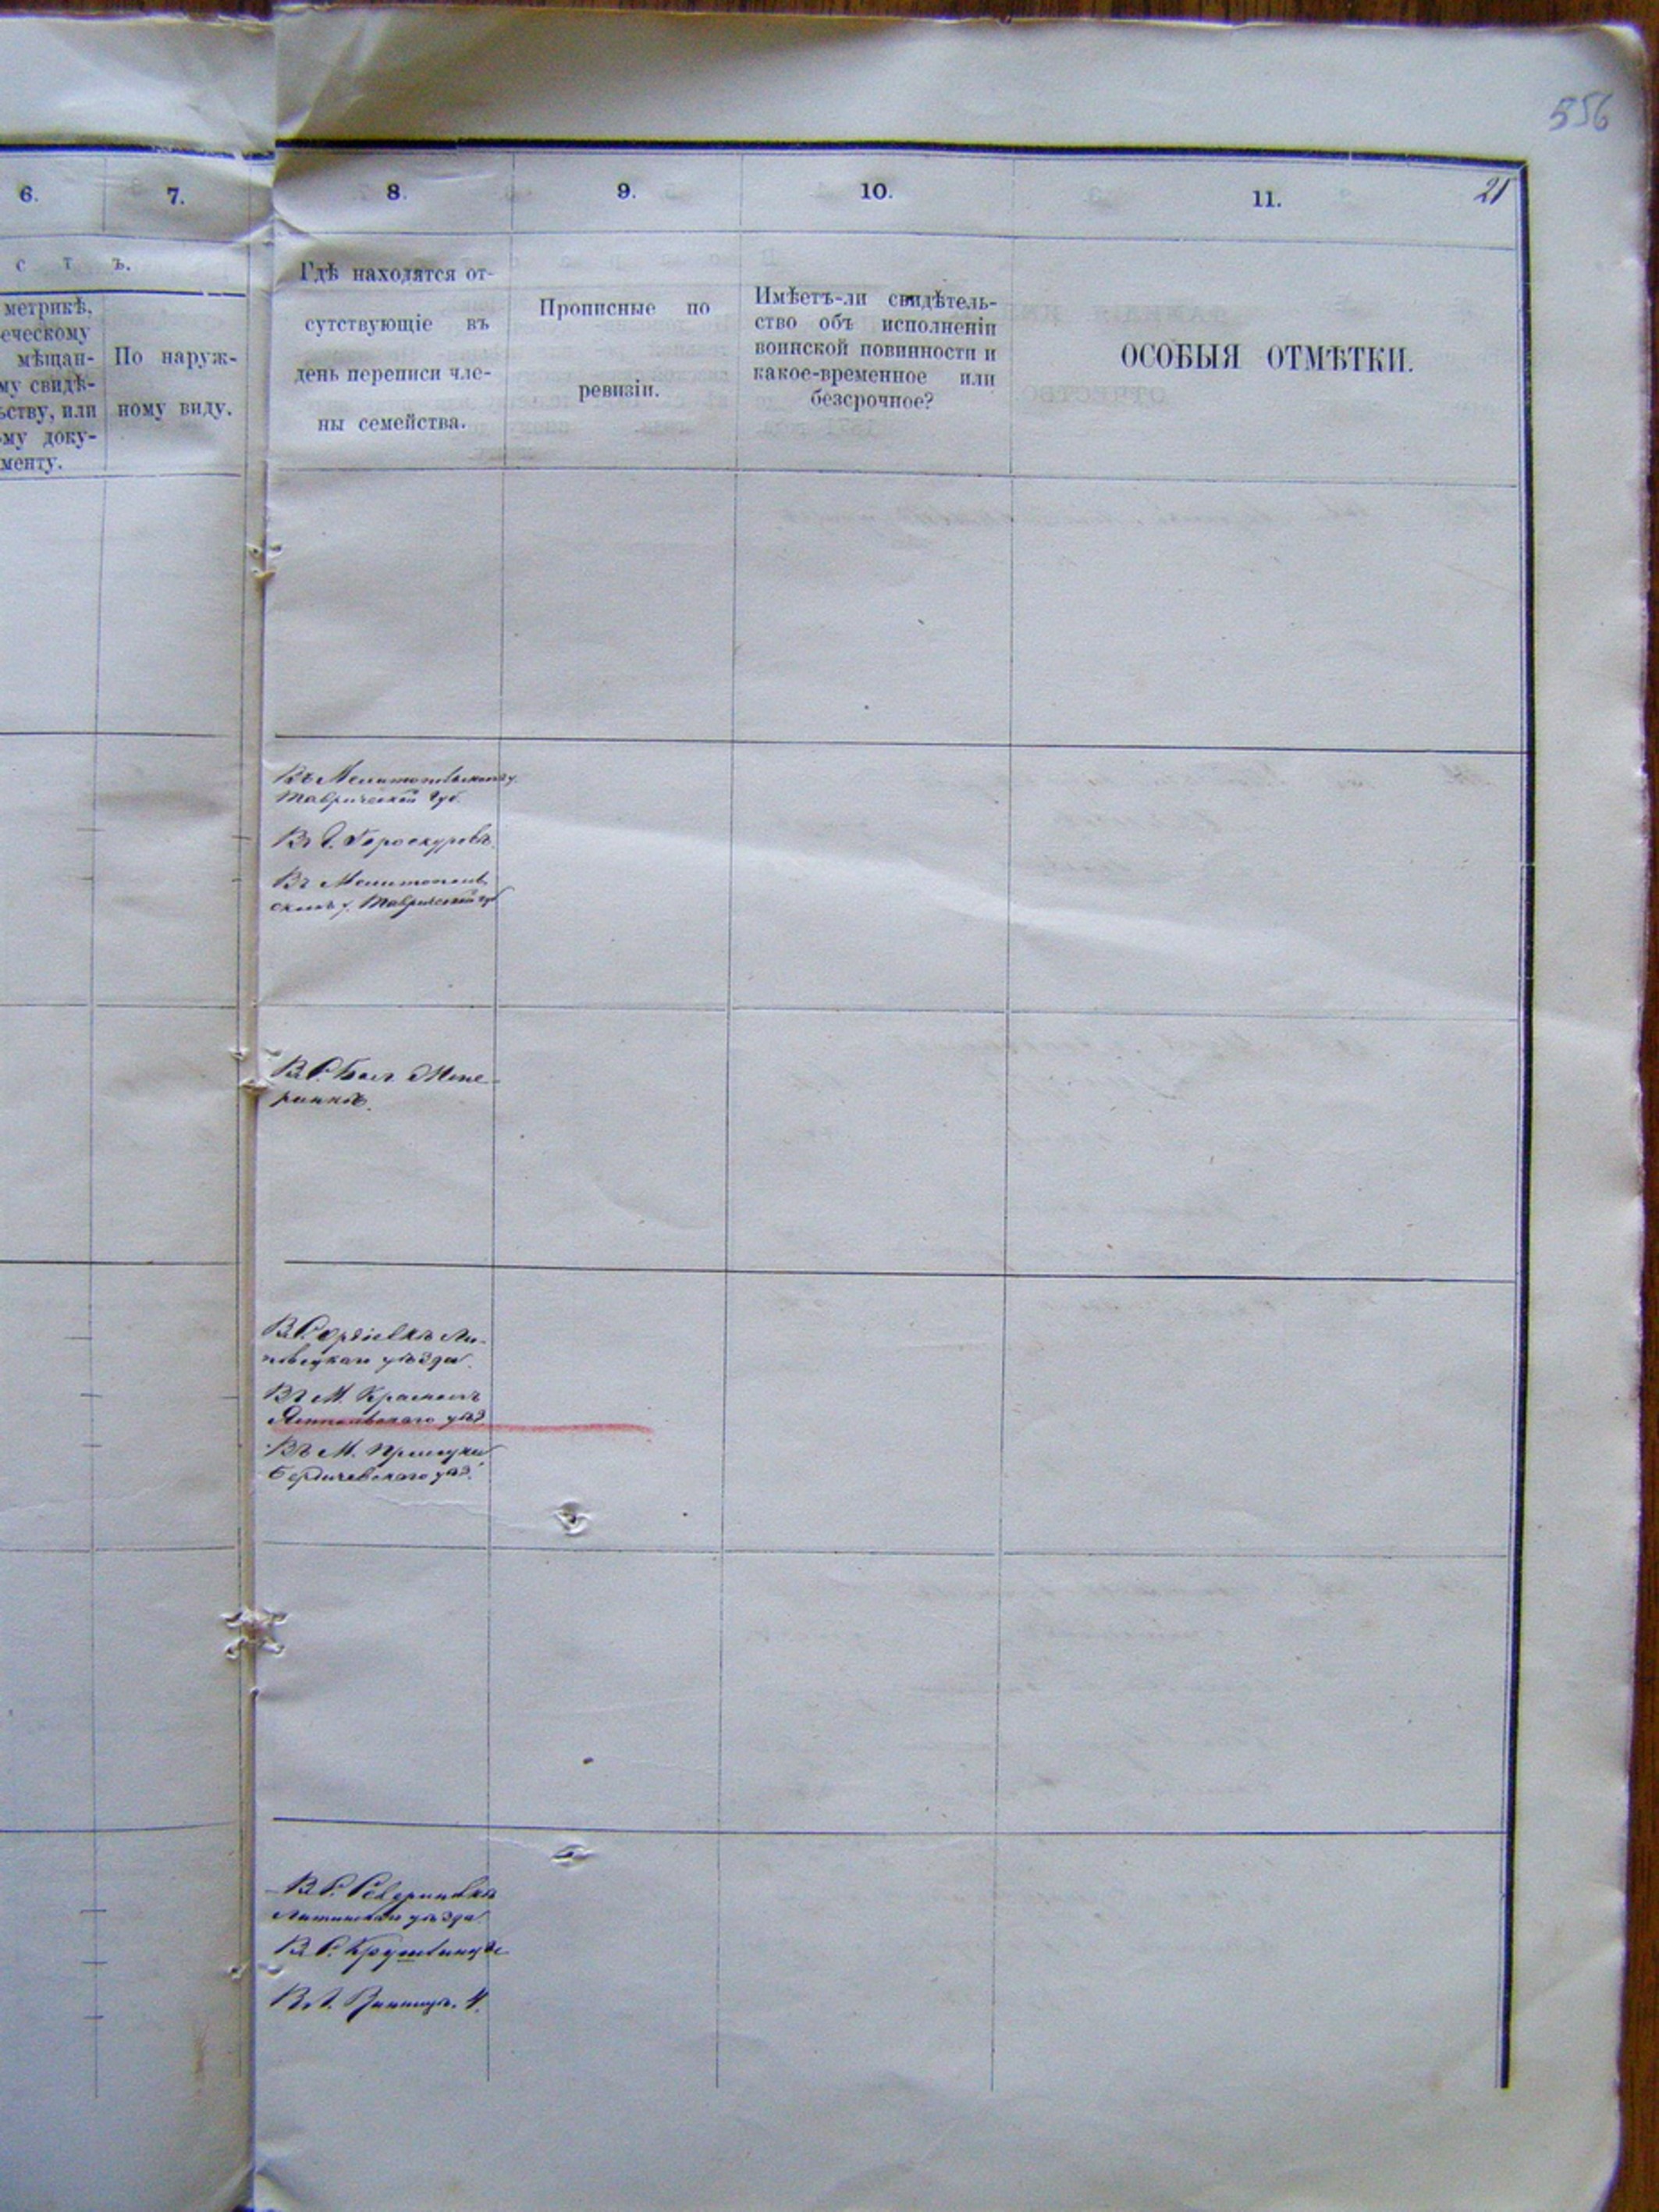 556
21
6.
7.
8.
9.
10.
11.
с т ъ.
метрикѣ,
еческому
мѣщан-
му свидѣ-
ьству, или
му доку-
менту.
По наруж-
ному виду.
Гдѣ находятся от-
сутствующіе въ
день переписи чле-
ны семейства.
Прописные по
ревизіи.
Имѣетъ-ли свидѣтель-
ство объ исполненіи
воинской повинности и
какое-временное или
безсрочное?
ОСОБЫЯ ОТМѢТКИ.
Въ Мелитопольскомъ у.
Таврической губ.
Въ г. Проскуровѣ.
Въ Мелитополь
скомъ у. Таврической губ
Въ С.
Въ С. Ли-
повецкаго уѣзда.
Въ М. Красномъ
Ямпольскаго уѣз.
Въ М. Прилуки
Бердичевскаго уѣз.
Въ С. Севериновкѣ
Литинскаго уѣзда.
Въ С.
Въ г. Винницѣ.